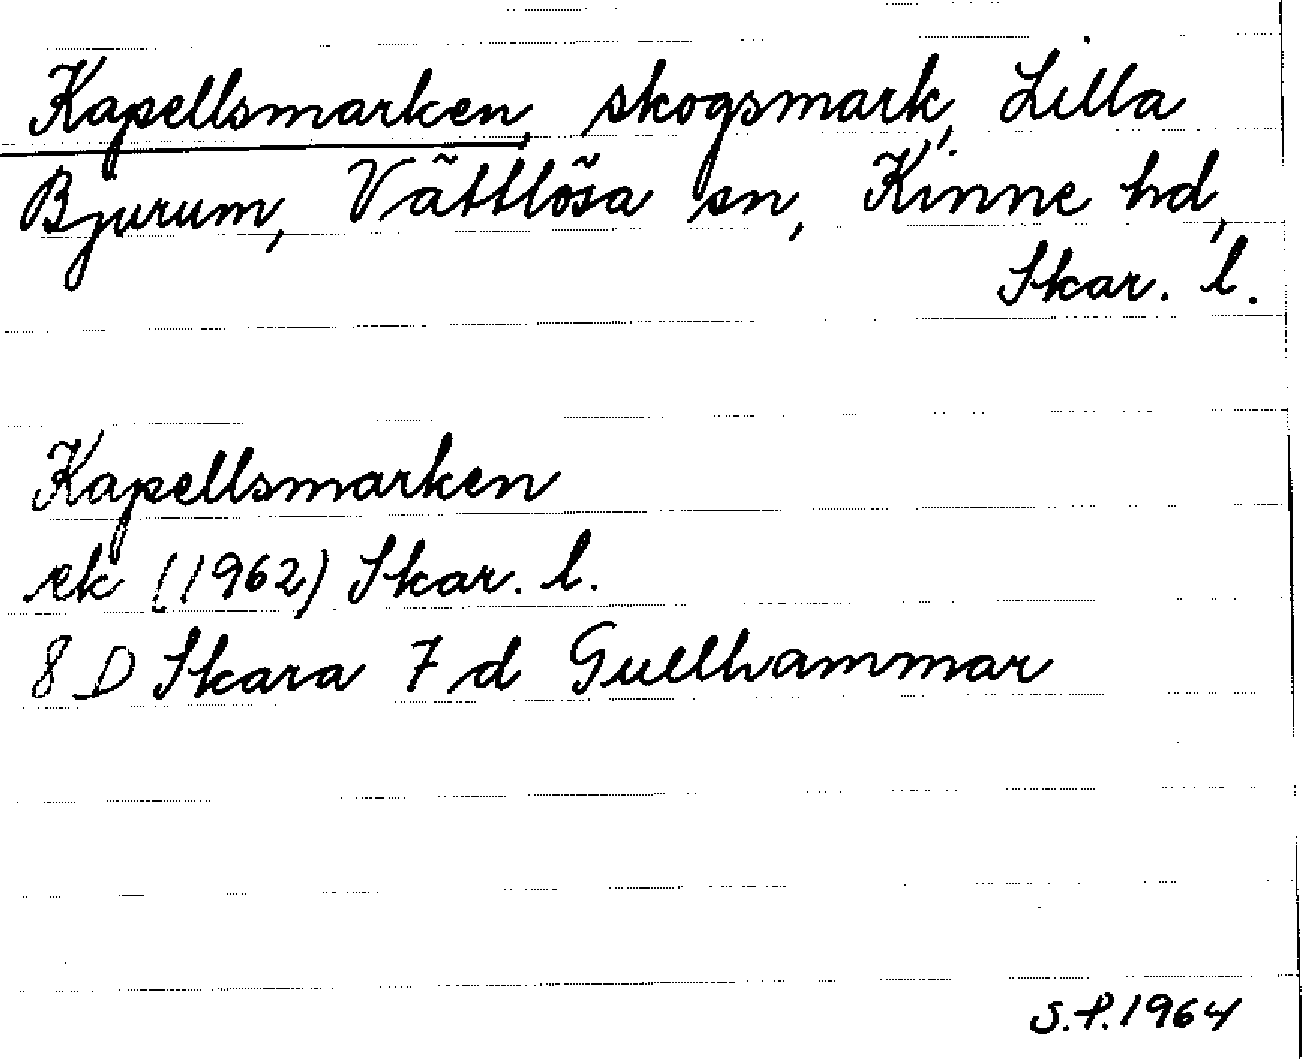 Kapellsmarken, skogsmark, Lilla
Bjurum, Vättlösa sn, Kinne hd,
Skar. l.
Kapellsmarken
ek (1962) Skar. l.
8 D Skara 7 d Gullhammar
S.P. 1964